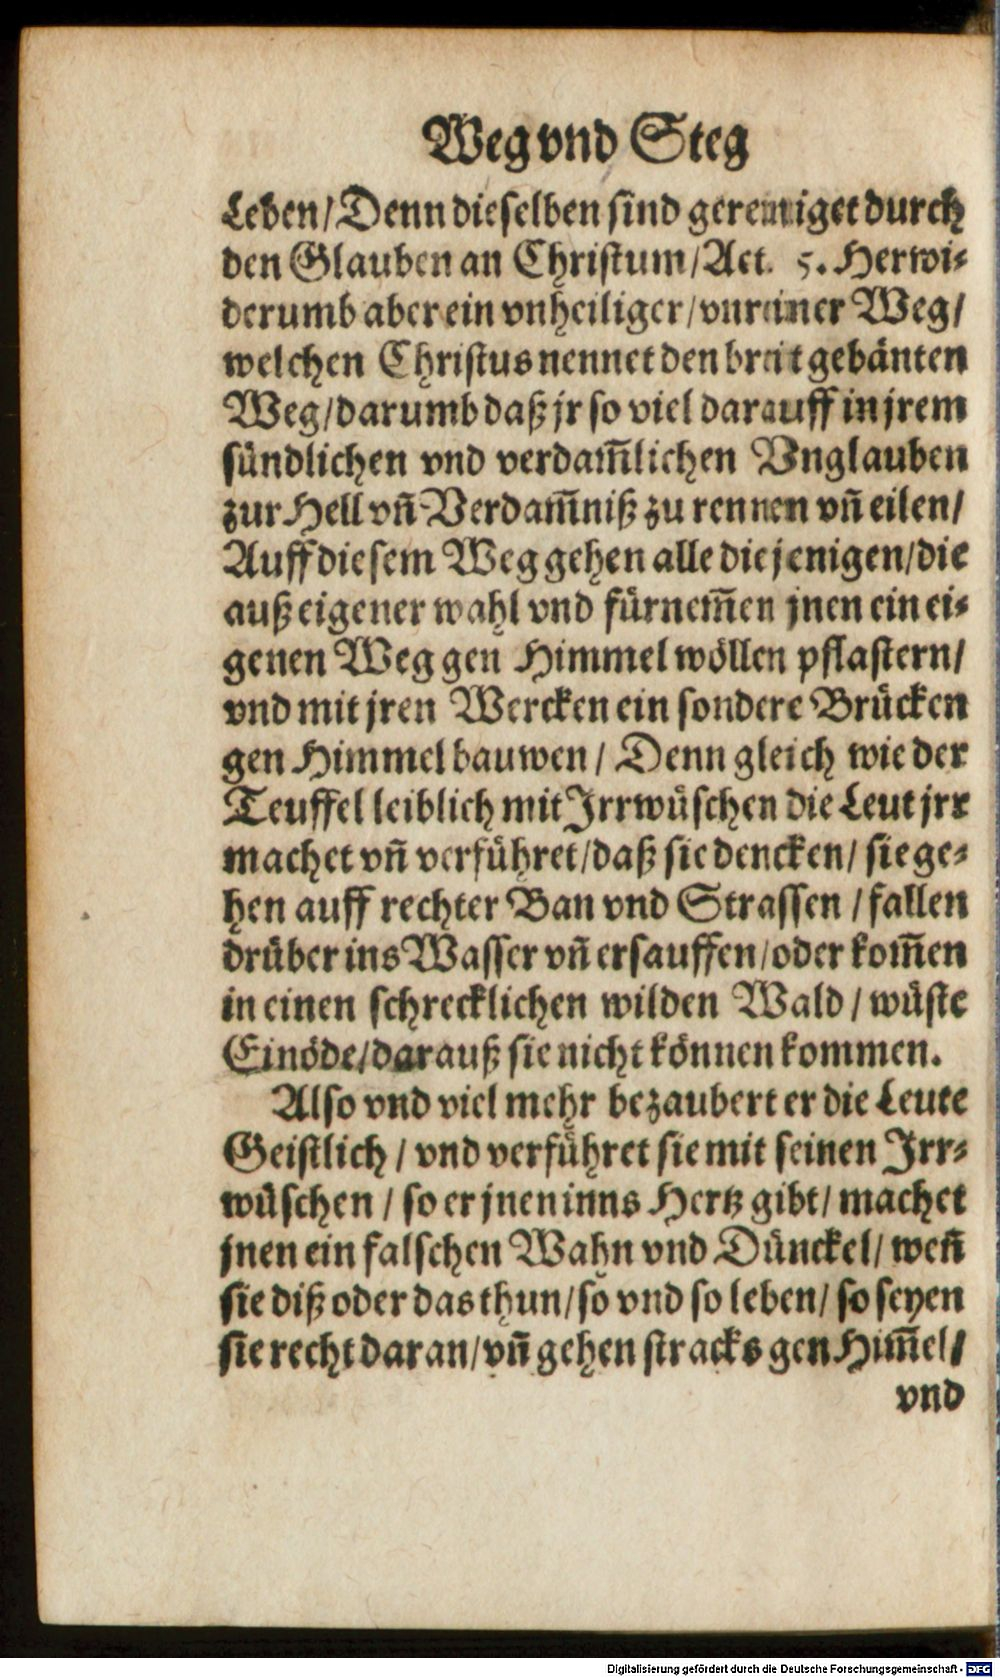 Weg vnd Steg
Leben/ Denn dieselben sind gereiniget durch
den Glauben an Christum/ Act. 5. Herwi-
derumb aber ein vnheiliger/ vnreiner Weg/
welchen Christus nennet den breit gebänten
Weg/ darumb daß jr so viel darauff in jrem
sündlichen vnd verdam̃lichen Vnglauben
zur Hell vñ Verdam̃niß zu rennen vñ eilen/
Auff diesem Weg gehen alle die jenigen/ die
auß eigener wahl vnd fürnem̃en jnen ein ei-
genen Weg gen Himmel wöllen pflastern/
vnd mit jren Wercken ein sondere Brücken
gen Himmel bauwen/ Denn gleich wie der
Teuffel leiblich mit Irrwüschen die Leut jrr
machet vñ verführet/ daß sie dencken/ sie ge-
hen auff rechter Ban vnd Strassen/ fallen
drüber ins Wasser vñ ersauffen/ oder kom̃en
in einen schrecklichen wilden Wald/ wüste
Einöde/ darauß sie nicht können kommen.
Also vnd viel mehr bezaubert er die Leute
Geistlich/ vnd verführet sie mit seinen Irr-
wüschen/ so er jnen inns Hertz gibt/ machet
jnen ein falschen Wahn vnd Dünckel/ weñ
sie diß oder das thun/ so vnd so leben/ so seyen
sie recht daran/ vñ gehen stracks gen Him̃el/
vnd
Digitalisierung gefördert durch die Deutsche Forschungsgemeinschaft - DFG